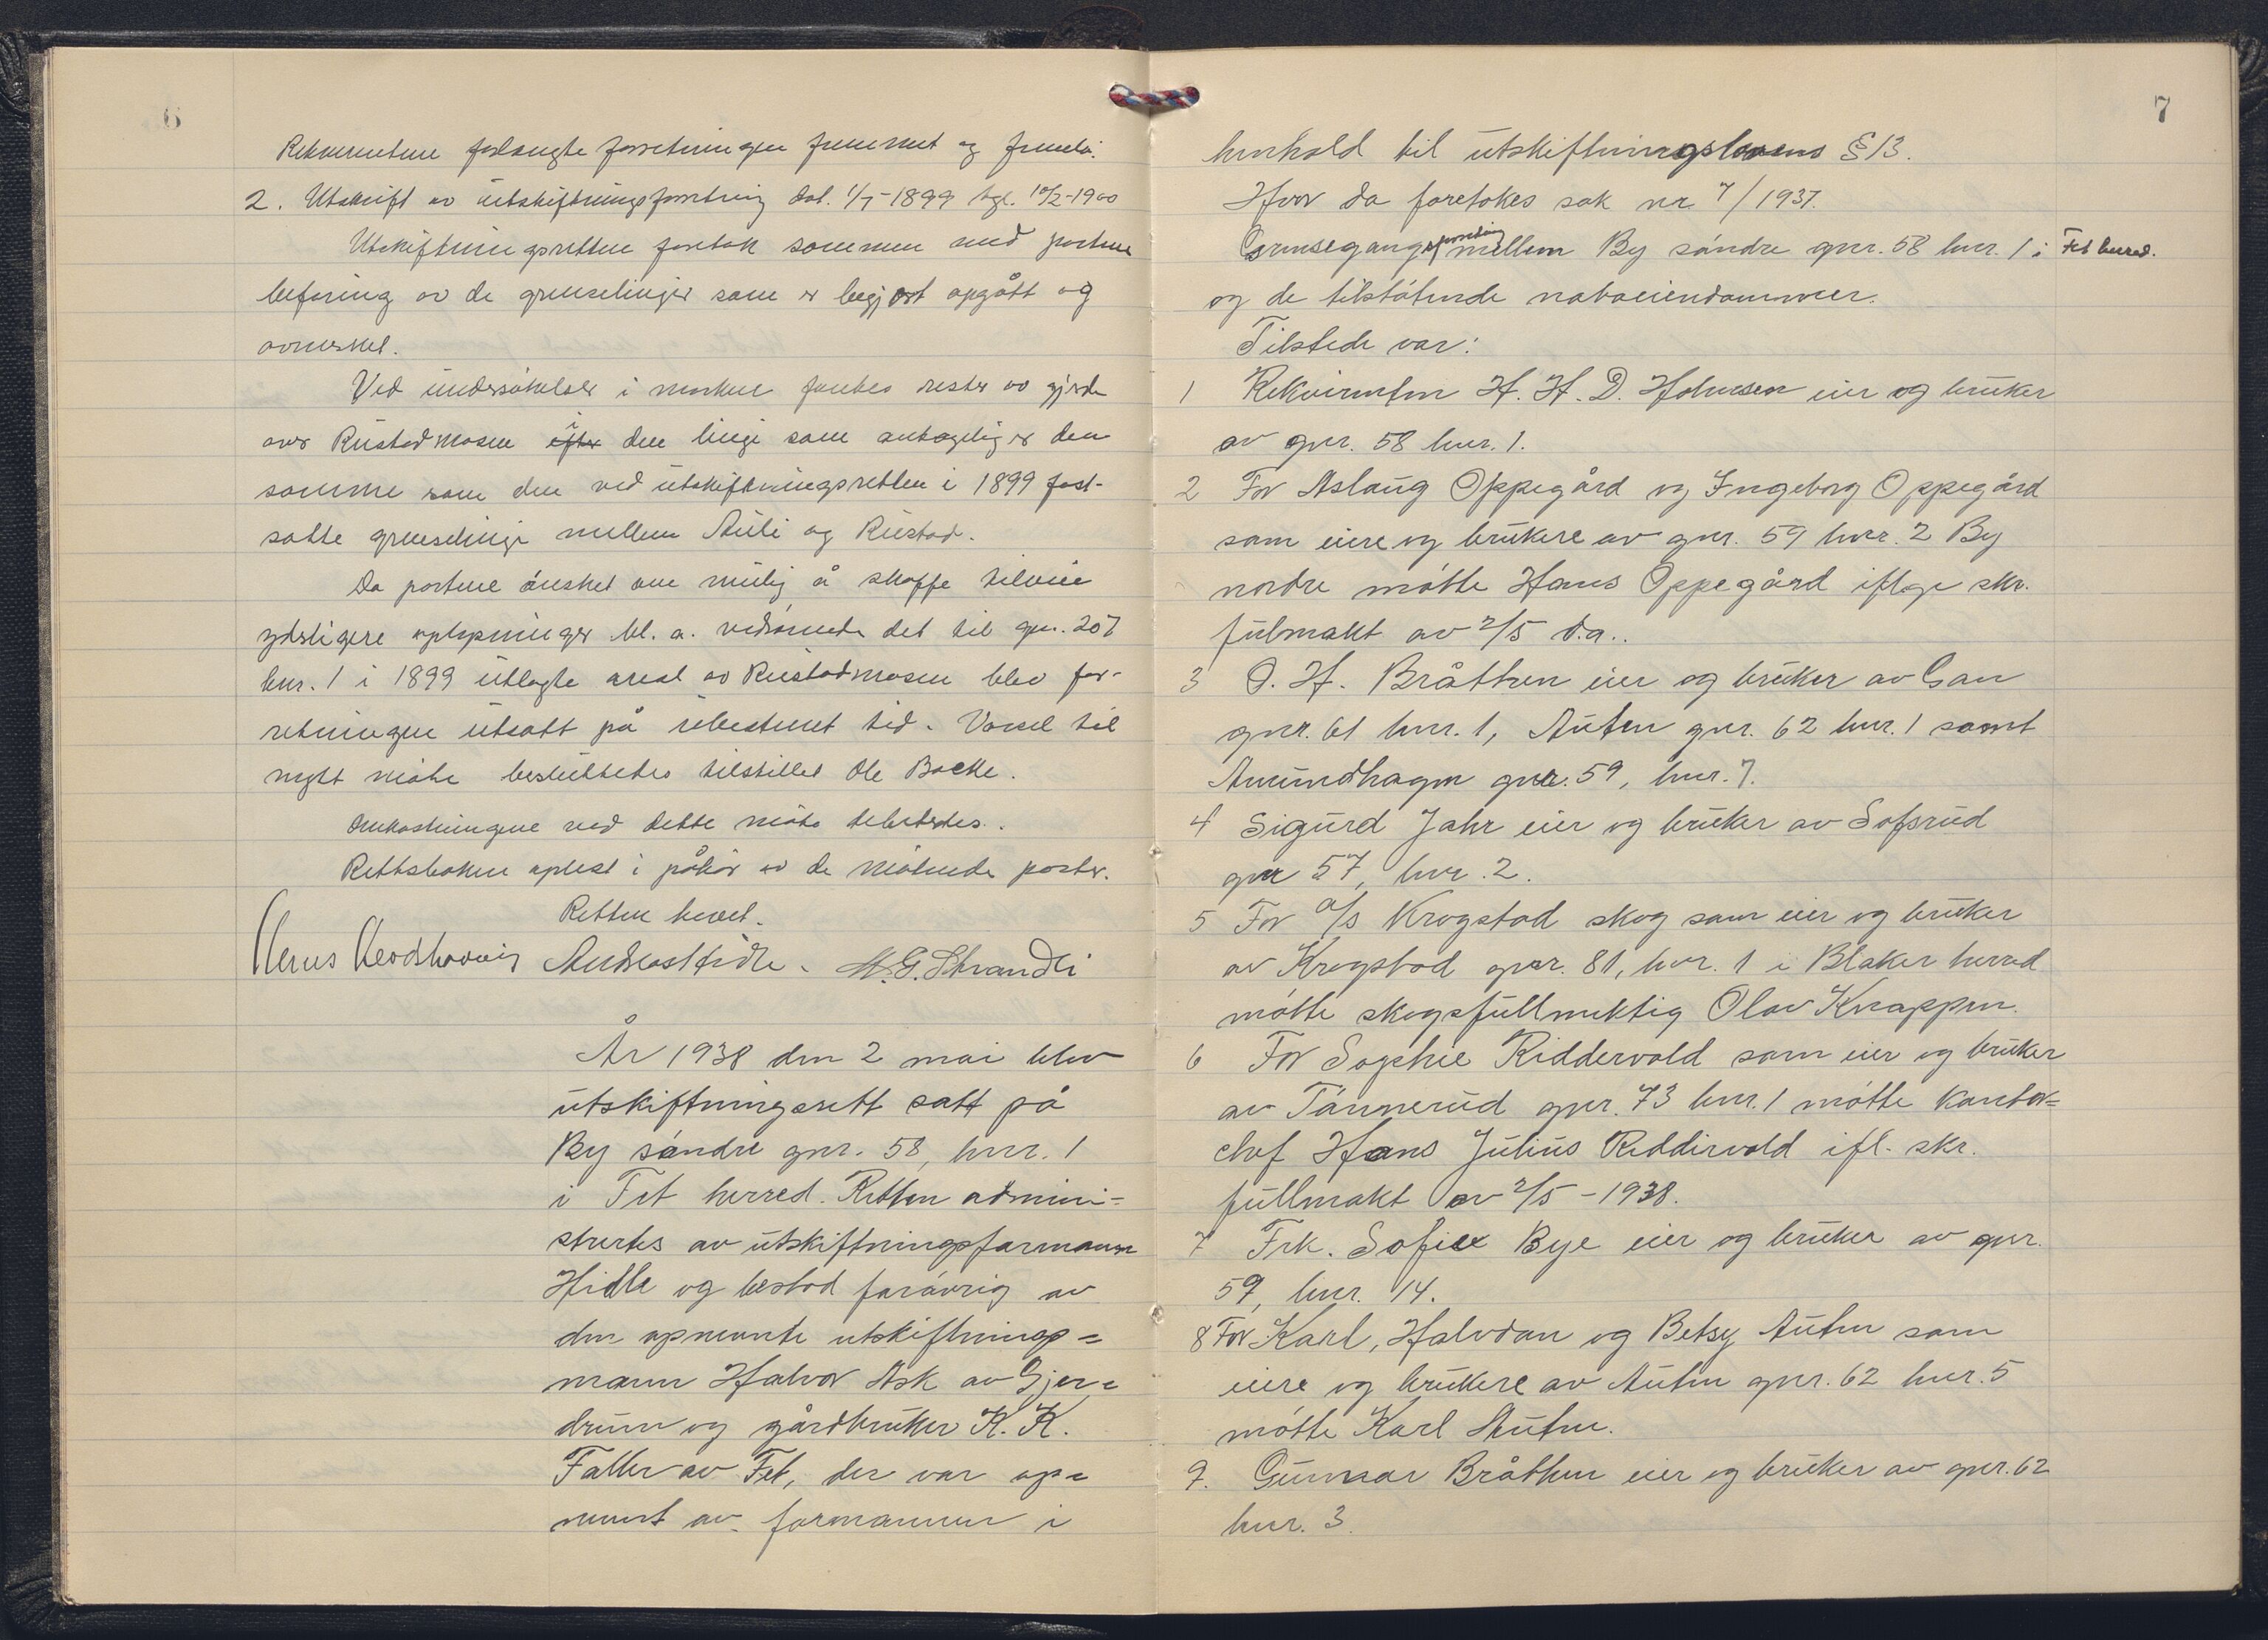 6
Rekvirentene forlangte forretningen fremmet og freml.
2. Utskrift av utskiftningsforretning dat. 1/7-1899 tgl. 10/2-1900
Utskiftningsretten foretok sammen med partene
befaring av de grenselinjer som er begjært opgått og
avmerket.
Ved undersøkelser i marken fantes rester av gjerde
over Rustadmosen efter den linje som antagelig er den
samme som den ved utskiftningsretten i 1899 fast-
satte grenselinje mellem Auli og Rustad.
Da partene ønsket om mulig å skaffe tilveie
yderligere oplysninger bl. a. vedrørende det til gnr. 207
bnr. 1 i 1899 utlagte areal av Rustadmosen blev for-
retningen utsatt på ubestemt tid. Varsel til
nytt møte besluttedes tilstillet Ole Bache.
Omkostningene ved dette møte debiteres.
Rettsboken oplest i påhør av de møtende parter.
Retten hevet.
Andreas Hidle. M. G. Strandli
År 1938 den 2 mai blev
utskiftningsrett satt på
By søndre gnr. 58, bnr. 1
i Fet herred. Retten admini=
streres av utskiftningsformann
Hidle og bestod forøvrig av
den opnevnte utskiftnings=
mann Halvor Ask av Gjer=
drum og gårdbruker K. K.
Faller av Fet, der var op=
nevnt av formannen i
7
henhold til utskiftningslovens § 13.
Hvor da foretokes sak nr. 7/1937.
Grensegangsforretning mellem By søndre gnr. 58 bnr. 1 i Fet herred.
og de tilstøtende naboeiendommer.
Tilstede var:
1 Rekvirenten H. H. D. Holmsen eier og bruker
av gnr. 58 bnr. 1.
2 For Aslaug Oppegård og Ingeborg Oppegård
som eiere og brukere av gnr. 59 bnr. 2 By
nordre møtte Hans Oppegård iflge skr.
fulmakt av 2/5 d.a..
3 O. H. Bråthen eier og bruker av Gan
gnr. 61 bnr. 1, Auten gnr. 62 bnr. 1 samt
Amundhagen gnr. 59, bnr. 7.
4 Sigurd Jahr eier og bruker av Sofsrud
gnr 57, bnr. 2.
5 For a/s Krogstad skog som eier og bruker
av Krogstad gnr. 81, bnr. 1 i Blaker herred
møtte skogsfullmektig Olav Knappen.
6 For Sophie Riddervold som eier og bruker
av Tännerud gnr. 73 bnr. 1 møtte kontor=
chef Hans Julius Riddervold ifl. skr.
fullmakt av 2/5-1938.
7 Frk. Sofie Bye eier og bruker av gnr.
59, bnr. 14.
8 For Karl, Halvdan og Betsy Auten som
eiere og brukere av Auten gnr. 62 bnr. 5
møtte Karl Auten.
9. Gunnar Bråthen eier og bruker av gnr. 62
bnr. 3.